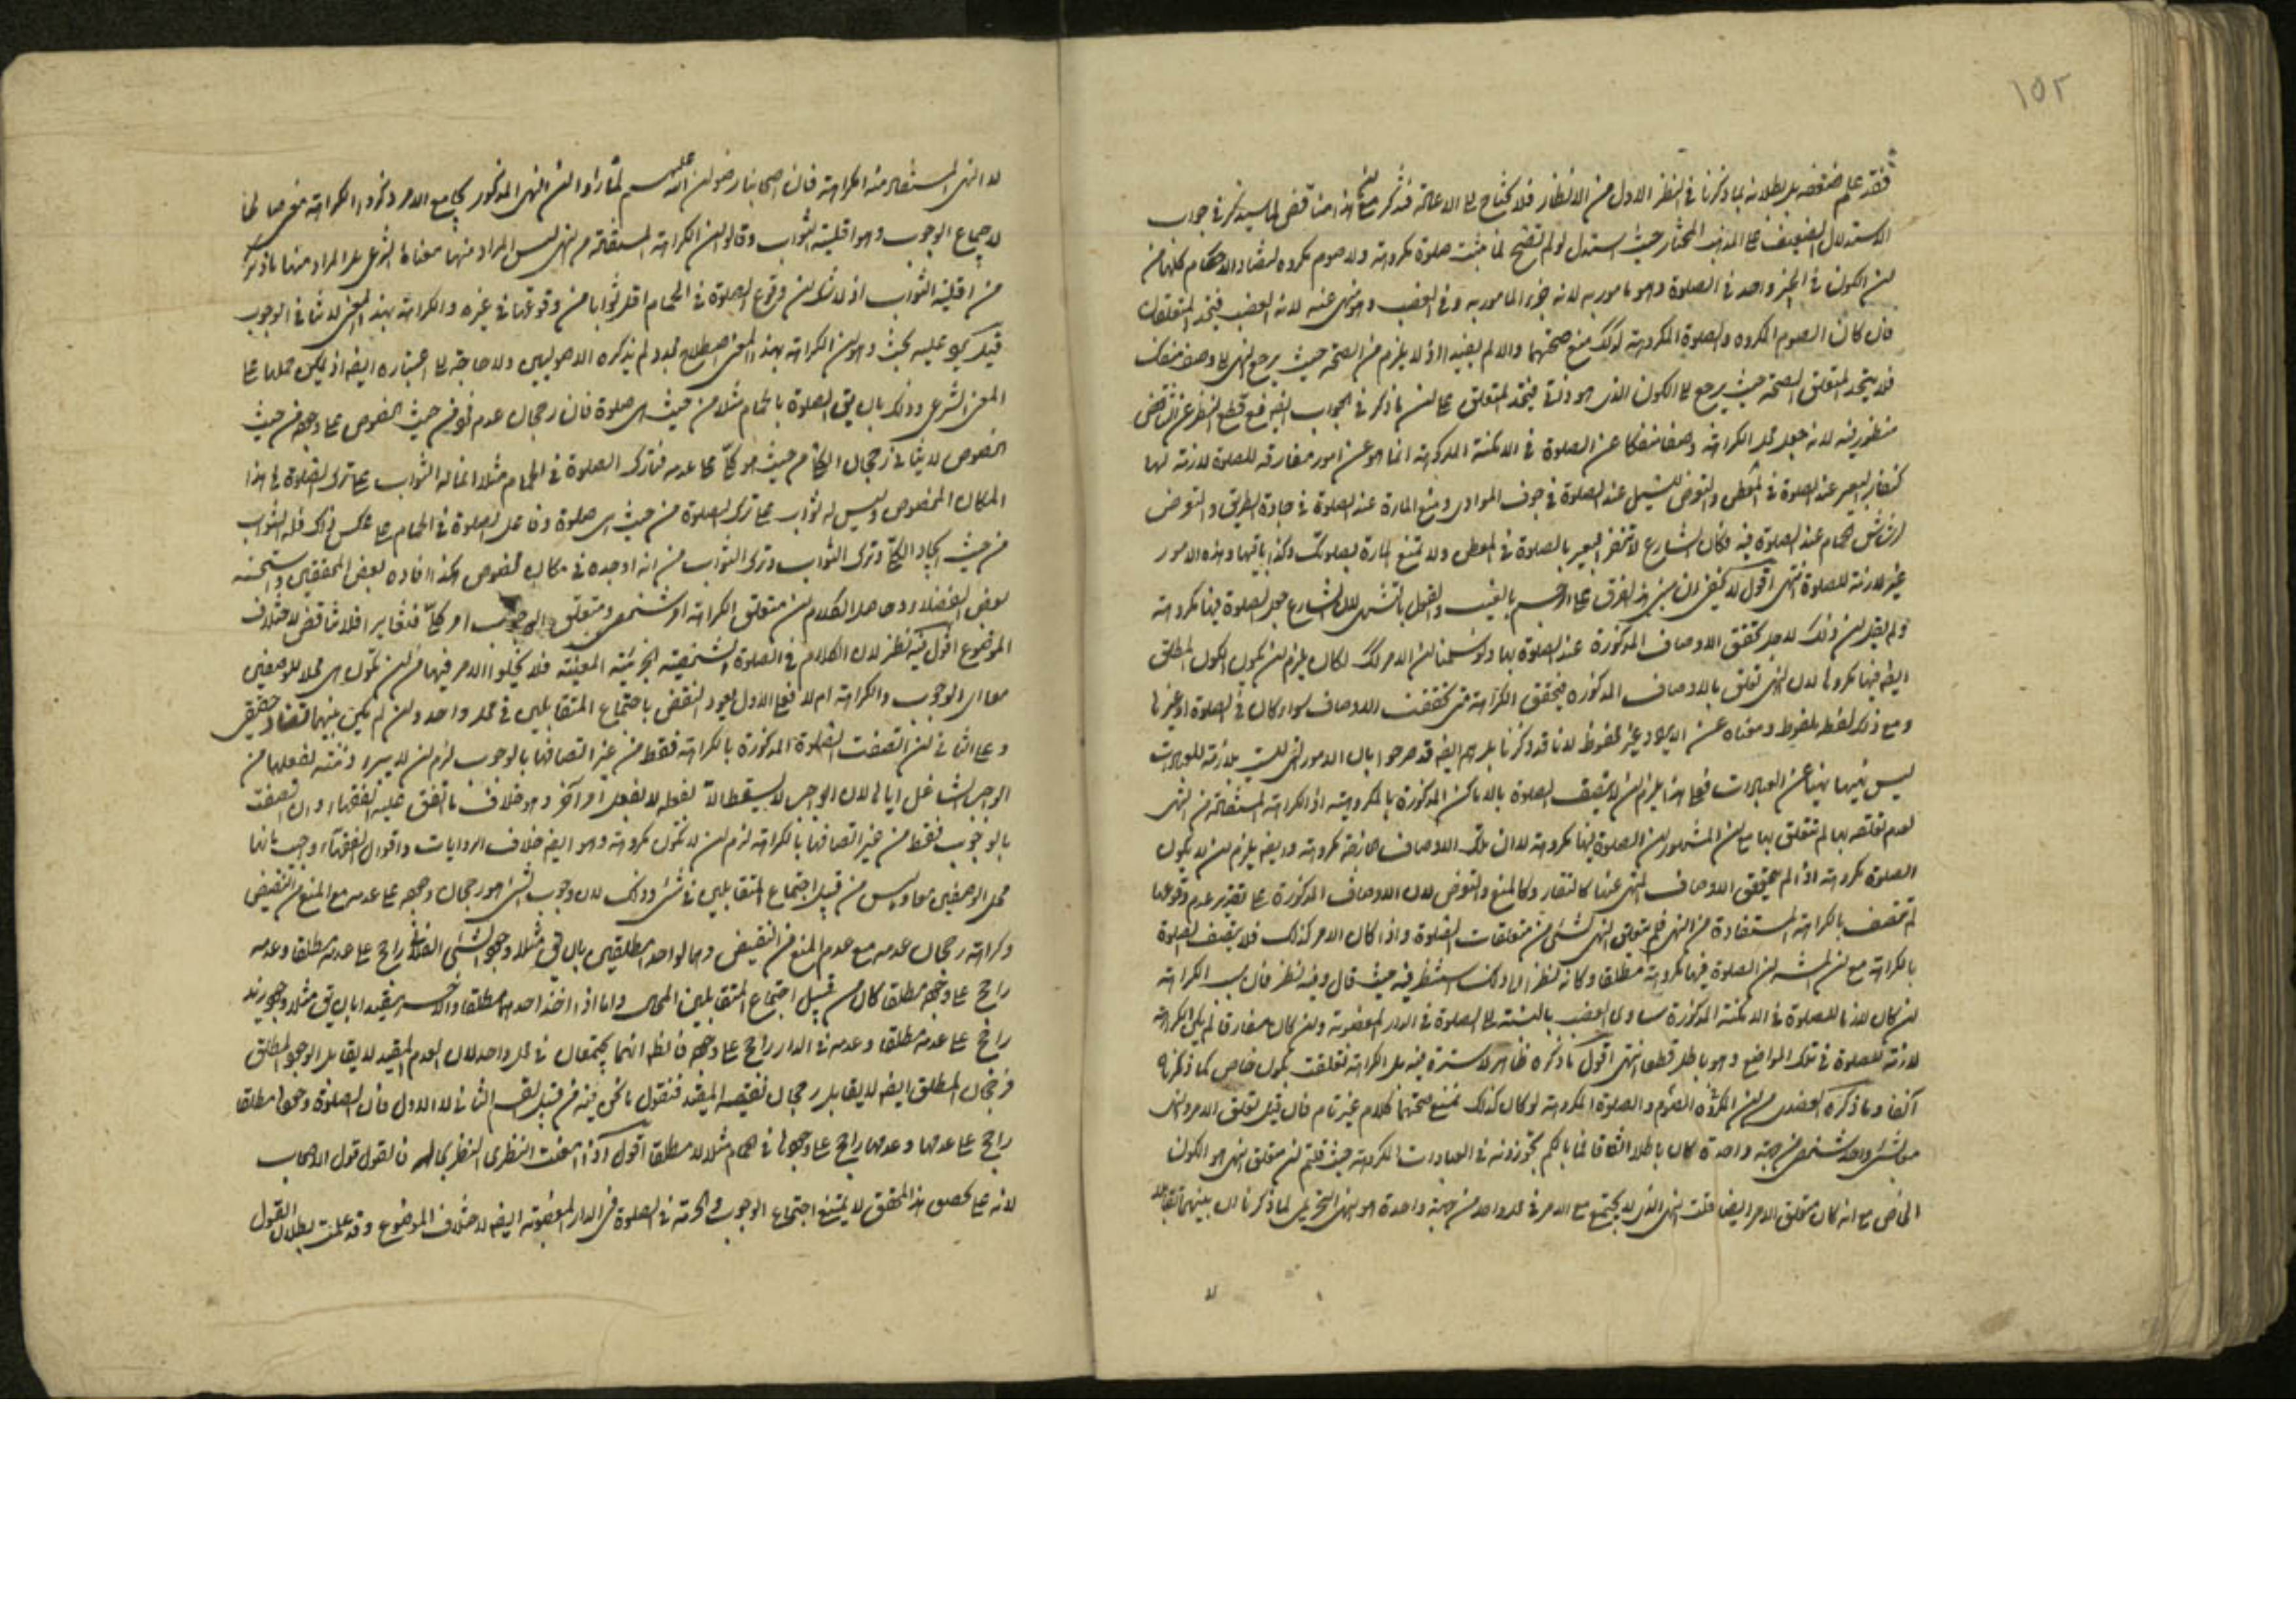 ١٥٢
فقد علم ضعفه بل بطلانه بما ذكرنا في النظر الاول من الانظار فلا يحتاج الى الاعادة فتذكر مع ان هذا مناقض لما سيذكر في جواب
الاستدلال الضعيف على المذهب المختار حيث استدل لو لم تصح لما ثبت صلوة مكروهة ولا صوم مكروه لتضاد الاحكام
لان الكون في الحيز واحد في الصلوة وهو مامور به لانه جزء المامور به وفي الغصب وهو منهي عنه لانه الغصب فيتحد المتعلقان
فان كان الصوم المكروه والصلوة المكروهة كذلك منع صحتهما والا لم يفيد اذ لا يلزم من الصحة حيث يرجع النهي الى وصف منفك
فلا يتحد المتعلق الصحة حيث يرجع الى الكون الذي هو ذاتي فيتحد المتعلق على ان ما ذكر في الجواب ايضا مع قطع النظر عن التناقض
منظور فيه لانه جعل محل الكراهة وصفا منفكا عن الصلوة في الامكنة المكروهة انما هو عن امور مفارقة للصلوة لازمة لها
كنفار البعير عند الصلوة في المعطن والتعرض للسيل عند الصلوة في جوف الوادي ومنع المارة عند الصلوة في جادة الطريق والتعرض
لرشاش الحمام عند الصلوة فيه فكان الشارع لا تنفر البعير بالصلوة في المعطن ولا تمنع المارة بصلوتك وكذا باقيها وهذه الامور
غير لازمة للصلوة انتهى اقول لا يخفى ان هذا الفرق لان الشارع جعل الصلوة فيها مكروهة
ولم يقل ان ذلك لاجل تحقق الاوصاف المذكورة عند الصلوة بها ولو سلمنا ان الامر كذلك لكان يلزم ان يكون الكون المطلق
ايضا فيها مكروها لان النهي تعلق بالاوصاف المذكورة فيتحقق الكراهة متى تحققت الاوصاف سواء كان في الصلوة او غيرها
ومع ذلك لفظ ملفوظ ومعناه عن غير محفوظ لانا قد ذكرنا بل هم ايضا قد صرحوا بان الامور التي ليست بلازمة للعبادات
ليس نهيها نهيا عن العبادات فعلى هذا يلزم ان لا يتصف الصلوة بالاماكن المذكورة بالمكروهية اذ الكراهة المستفادة من النهي
لعدم تعلقه بها لم تتعلق بها مع ان المشهور ان الصلوة فيها مكروهة لا ان تلك الاوصاف العارضة مكروهة وايضا يلزم ان لا يكون
الصلوة مكروهة اذا لم يتحقق الاوصاف المنهي عنها كالنفار وكالمنع والتعرض لان الاوصاف المذكورة على تقدير عدم وقوعها
لم تتصف بالكراهة المستفادة من النهي فلم يتعلق النهي لشيء من متعلقات الصلوة واذا كان الامر كذلك فلا يتصف الصلوة
بالكراهة مع ان المشهور ان الصلوة فيها مكروهة مطلقا وكانه نظر الى ذلك استنظر فيه حيث قال وفيه نظر فان سبب الكراهة
ان كان لازما للصلوة في الامكنة المذكورة ساوى الغصب بالنسبة الى الصلوة في الدار المغصوبة وان كان مفارقا لم يكن الكراهة
لازمة للصلوة في تلك المواضع وهو باطل قطعا انتهى اقول ما ذكره ظاهر لا سترة فيه بل الكراهة تعلقت بكون خاص كما ذكرناه
آنفا وما ذكره العضدي من ان المكروه الصوم والصلوة المكروهة لو كان كذلك نمنع صحتهما كلام غير تام فان قيل تعلق الامر والنهي
من جهة واحدة كان باطلا اتفاقا فما بالكم تجوزونه في العبادات المكروهة حيث قلتم ان متعلق النهي هو الكون
الخاص مع انه كان متعلق الامر ايضا قلت النهي الذي لا يجتمع مع الامر في محل واحد من جهة واحدة هو النهي التحريمي لما ذكرنا ان بينهما تقابلا
لا النهي المستفاد منه الكراهة فان اصحابنا رضوان الله عليهم لما رأوا ان النهي المذكور يجامع الامر ذكروا الكراهة معنى صالحا
لاجتماع الوجوب وهو اقلية الثواب وقالوا ان الكراهة المستفادة من النهي ليس المراد منها معناها الشرعي بل المراد منها ما ذكروا
من اقلية الثواب اذ لا شك ان وقوع الصلوة في الحمام اقل ثوابا من وقوعها في غيره والكراهة بهذا المعنى لا تنافي الوجوب
عليه بحث وهو ان الكراهة بهذا المعنى اصطلاح جديد لم يذكره الاصوليين ولا حاجة الى اعتباره ايضا اذ يمكن حملها على
المعنى الشرعي وذلك بان يق الصلوة بالحمام مثلا من حيث هي صلوة فان رجحان عدمه من حيث الخصوص على وجوده من حيث
الخصوص لا ينافي رجحان الكلي من حيث هو كلي على عدمه فتارك الصلوة في الحمام مثلا انما له الثواب على ترك الصلوة في هذا
المكان المخصوص وليس له ثواب على ترك الصلوة من حيث هي صلوة وفاعل الصلوة في الحمام على عكس ذلك فله الثواب
من حيث ايجاد الكلي وترك الثواب من انه اوجده في مكان مخصوص هكذا افاده بعض المحققين واستحسنه
بعض الفضلاء وحاصل الكلام ان متعلق الكراهة امر شخصي ومتعلق الوجوب امر كلي فتغايرا فلا تناقض لاختلاف
الموضوع اقول فيه نظر لان الكلام في الصلوة الشخصية الجزئية المعينة فلا يخلو الامر فيها من ان تكون هي محلا للوصفين
معا اي الوجوب والكراهة ام لا فعلى الاول يعود النقض باجتماع المتقابلين في محل واحد وان لم يكن بينهما تضاد حقيقي
وعلى الثاني ان اتصفت الصلوة المذكورة بالكراهة فقط من غير اتصافها بالوجوب لزم ان لا يبرء ذمته بفعلها من
الواجب الشاغل اياها لان الواجب لا يسقط الا بفعله لا بفعل امر آخر وهو خلاف ما اتفق عليه الفقهاء وان اتصفت
بالوجوب فقط من غير اتصافها بالكراهة لزم ان لا تكون مكروهة وهو ايضا خلاف الروايات واقوال الفقهاء واجيب بانها
محل الوصفين معا وليس من قبيل اجتماع المتقابلين في شيء وذلك لان وجوب الشيء هو رجحان وجوده على عدمه مع المنع من النقيض
وكراهته رجحان عدمه مع عدم المنع من النقيض وهما لو اخذا مطلقين بان يق مثلا وجود الشيء الفلاني راجح على عدمه مطلقا وعدمه
راجح على وجوده مطلقا كان من قبيل اجتماع المتقابلين المحال واما اذا اخذ احدهما مطلقا والآخر مقيدا بان يق مثلا وجود زيد
راجح على عدمه مطلقا وعدمه في الدار راجح على وجوده فالظ انهما يجتمعان في محل واحد لان العدم المقيد لا يقابل الوجود المطلق
فرجحان المطلق ايضا لا يقابل رجحان نقيضه المقيد فنقول ما نحن فيه من قبيل القسم الثاني لا الاول فان الصلوة وجودها مطلقا
راجح على عدمها وعدمها راجح على وجودها في الحمام مثلا لا مطلقا اقول اذا امعنت النظر فالقول قول الاصحاب
لانه على تحقيق هذا المحقق لا يمتنع اجتماع الوجوب والحرمة في الصلوة في الدار المغصوبة ايضا لاختلاف الموضوع وقد علمت بطلان القول